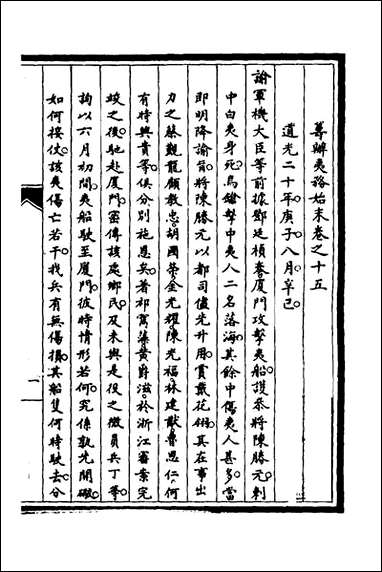 籌辦夷務始末卷之十五
道光二十年庚子八月辛巳
諭軍機大臣等前據鄧廷楨奏廈門攻擊夷船護參將陳勝元刺
中白夷身死烏鎗擊中夷人二名落海其餘中傷夷人甚多當
即明降諭旨將陳勝元以都司儘先升用賞戴花翎其在事出
力之蔡觀龍顧教忠胡國榮金光耀陳光福林建猷魯思仁何
有時興貴等俟分別施恩矣著祁寯藻黃爵滋於浙江審案完
竣之後馳赴廈門密傳該處鄉民及未與是役之微員兵丁等
詢以六月初間夷船駛至廈門彼時情形若何究係孰先開礮
如何接仗該夷傷亡若干我兵有無傷損其船隻何時駛去分
一